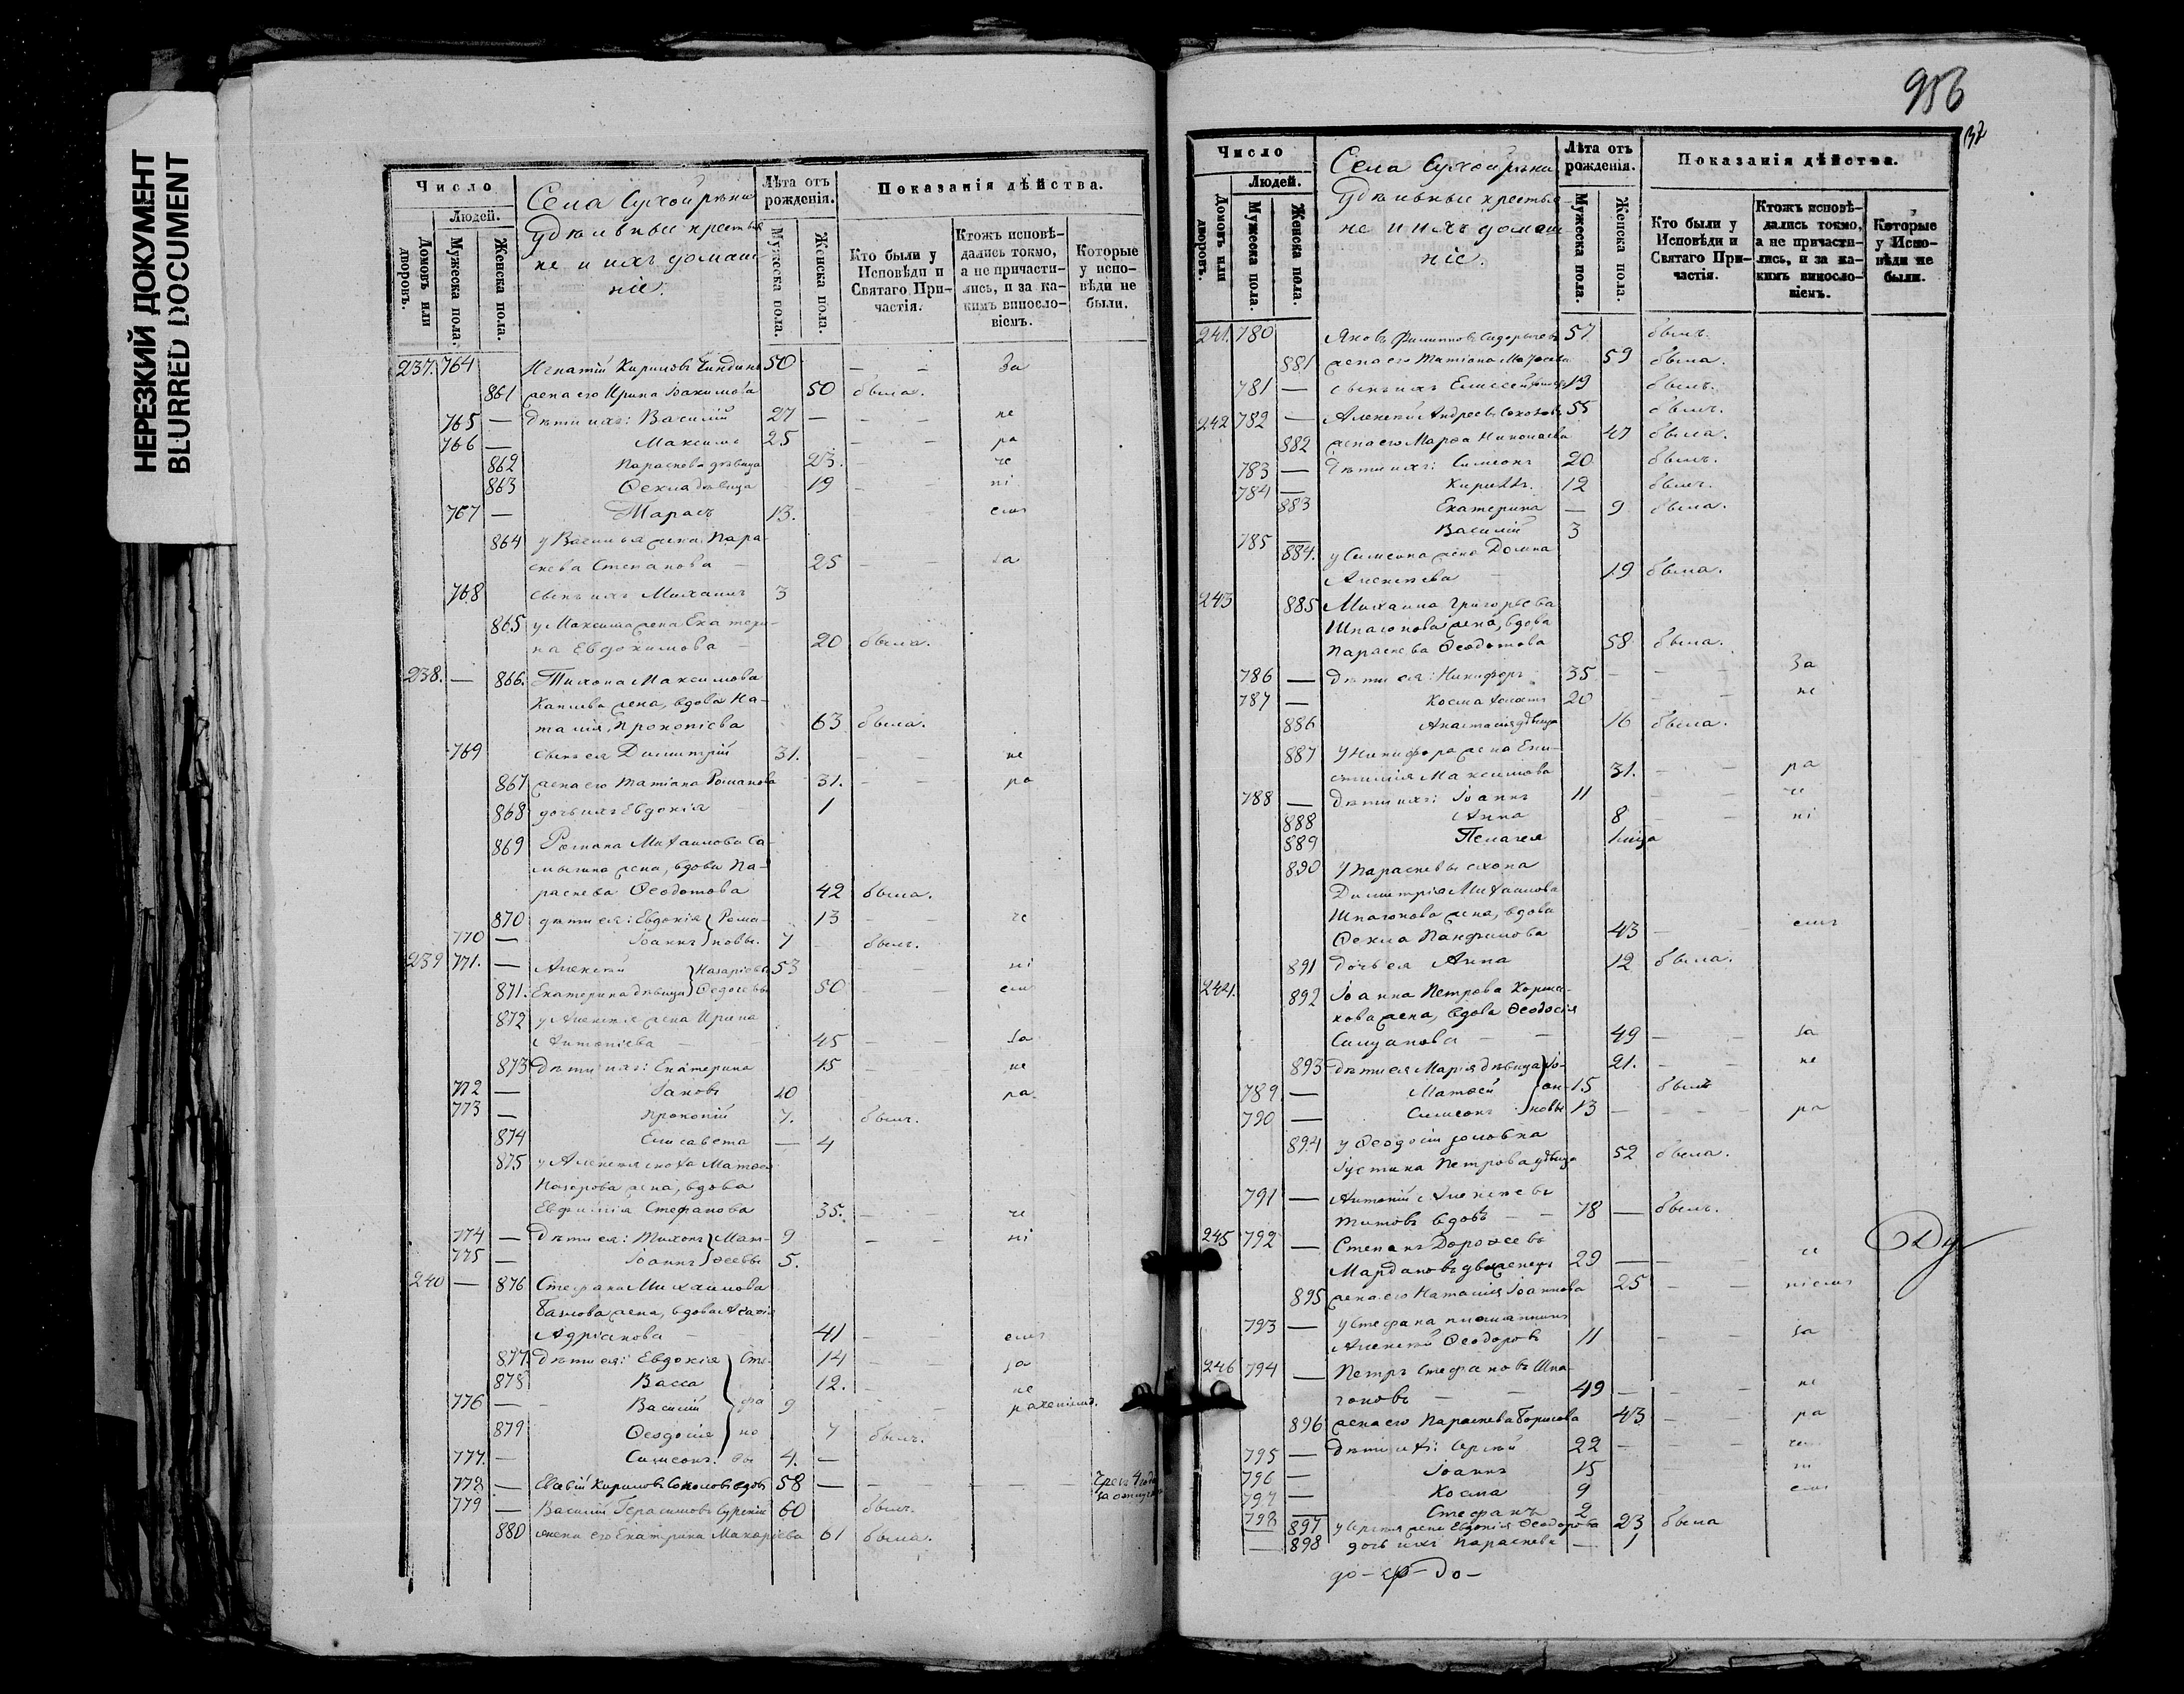 НЕРЕЗКИЙ ДОКУМЕНТ
BLURRED DOCUMENT
Число
Людей.
Домовъ или дворовъ.
Мужеска пола.
Женска пола.
Села Сухойрѣки
Удѣльные крестья
не и ихъ домаш-
ніе.
Лѣта отъ рожденія.
Мужеска пола.
Женска пола.
Показанія дѣйства.
Кто были у Исповѣди и Святаго При-частія.
Ктожъ исповѣ-дались токмо, а не причасти-лись, и за ка-кимъ винословіемъ.
Которые у испо-вѣди не были.
237. 764 Игнатій Кириловъ 50 — — За
861 жена его Ирина 50 была.
765 — дѣти ихъ: Василій 27 — — — не
766 — Максимъ 25 — — ра
862 Параскева дѣвица 23. — — че
863 Ѳекла дѣвица 19 — — ні
767 — Тарасъ 13. емъ
864 у Василья жена Пара-
скева Степанова — 25 — — за
768 сынъ ихъ Михаилъ 3
865 у Максима жена Екатери-
на Евдокимова — 20 была.
238. — 866. Тихона Максимова
жена, вдова На-
талія Прокопіева 63 была.
769 сынъ ея Димитрій 31. — — не
867 жена его Татіана Романова 31. — — ра
868 дочь ихъ Евдокія — 1
869 Романа Михаилова Са-
мылина жена, вдова Па-
раскева Ѳеодотова 42 была.
870 дѣти ея: Евдокія Рома- 13 — — че
770 — Іоаннъ новы. 7 — былъ.
239 771. — Алексѣй Назаріова 53 — — ні
871. Екатерина дѣвица 50 — — емъ
872 у Алексѣя жена Ирина
Антоніева — — 45 — — за
873 дѣти ихъ: Екатерина 15 — — не
772 — Іаковъ 10 — — ра
773 — Прокопій 7. былъ.
874 Елисавета — 4
875 у Алексѣя сноха Матѳея
Назарова жена, вдова
Евфимія Стефанова 35. — — че
774 — Дѣти ея: Тихонъ Мат- 9 — — ні
775 — Іоаннъ ѳеевы 5.
240 — 876 Стефана Михаилова
жена, вдова Агафія
Адріанова — 41 — — емъ
877. Дѣти ея: Евдокія Сте- 14 — — за
878 Васса 12. — не
776 — — Василій фа 9 — — раченіемъ.
879 Ѳеодосія но 7 былъ.
777. — Симеонъ вы 4. —
778 — Кириловъ Соколовъ вдовъ 58 — — — — —
779 — Василій Герасимовъ 60 былъ.
880 жена его Екатерина Макаріева 61 была.
956
Число
Людей.
Домовъ или дворовъ.
Мужеска пола.
Женска пола.
Села Сухойрѣки
Удѣльные крестья
не и ихъ домаш
ніе.
Лѣта отъ рожденія.
Мужеска пола.
Женска пола.
Показанія дѣйства.
Кто были у Исповѣди и Святаго При-частія.
Ктожъ исповѣ-дались токмо, а не причасти-лись, и за ка-кимъ винословіемъ.
Которые у Испо-вѣди не были.
241. 780 Яковъ Филиповъ 57 былъ.
881 жена его Татіана 59 была.
781 — сынъ ихъ Елисей 19 былъ.
242 782 — Алексѣй Андреевъ Соколовъ 55 былъ.
882 жена его Марѳа Николаева 47 была.
783 — Дѣти ихъ: Симеонъ 20 былъ.
784 — Кириллъ. 12 былъ.
883 Екатерина — 9 была.
785 Василій 3
884. у Симеона жена Домна
Алексѣева — 19 была.
243 885 Михаила Григорьева
Шпагонова жена, вдова
Параскева Ѳеодотова 58 была.
786 — Дѣти ея: Никифоръ 35 — — — За
787 — Косма 20 — не
886 Анастасія дѣвица 16 была.
887 У Никифора жена Ека-
Максимова 31. — — ра
788 — Дѣти ихъ: Іоаннъ 11 — — че
888 Анна 8 — — ні
889 Пелагея 1
890 У Параскевы сноха
Димитрія Михаилова
Шпагонова жена, вдова
Ѳекла Панфилова 43 — — емъ
891 Дочь ея Анна 12 была.
244. 892 Іоанна Петрова
жена, вдова Ѳеодосія
— — 49 — — за
893 Дѣти ея Марія дѣвица Іо- 21. — — не
789. — Матѳей ан- 15 былъ
790 — Симеонъ новы 13 — — — ра
894 у Ѳеодосіи золовка
Іустина Петрова дѣвица 52 была.
791 — Антоній Алексѣевъ
Титовъ вдовъ — — 78 — былъ.
245 792 — Степанъ Дороѳеевъ
Мардановъ 29 — — — че
895 жена его Наталія Іоаннова 25 — — ніемъ
793 — у Стефана племянникъ
Алексѣй Ѳеодоровъ 11 — — за
246 794 — Петръ Стефановъ Шпа-
гоновъ — — 49 — — не
896 жена его Параскева Борисова 43 — — ра
795 — Дѣти ихъ: Сергѣй 22 — — че
796 — Іоаннъ 15 ні
797 — Косма 9 емъ
798 — Стефанъ 2
897 у Сергѣя жена Евдокія Ѳеодорова 23 была
— 898 дочь ихъ Параскева — 1